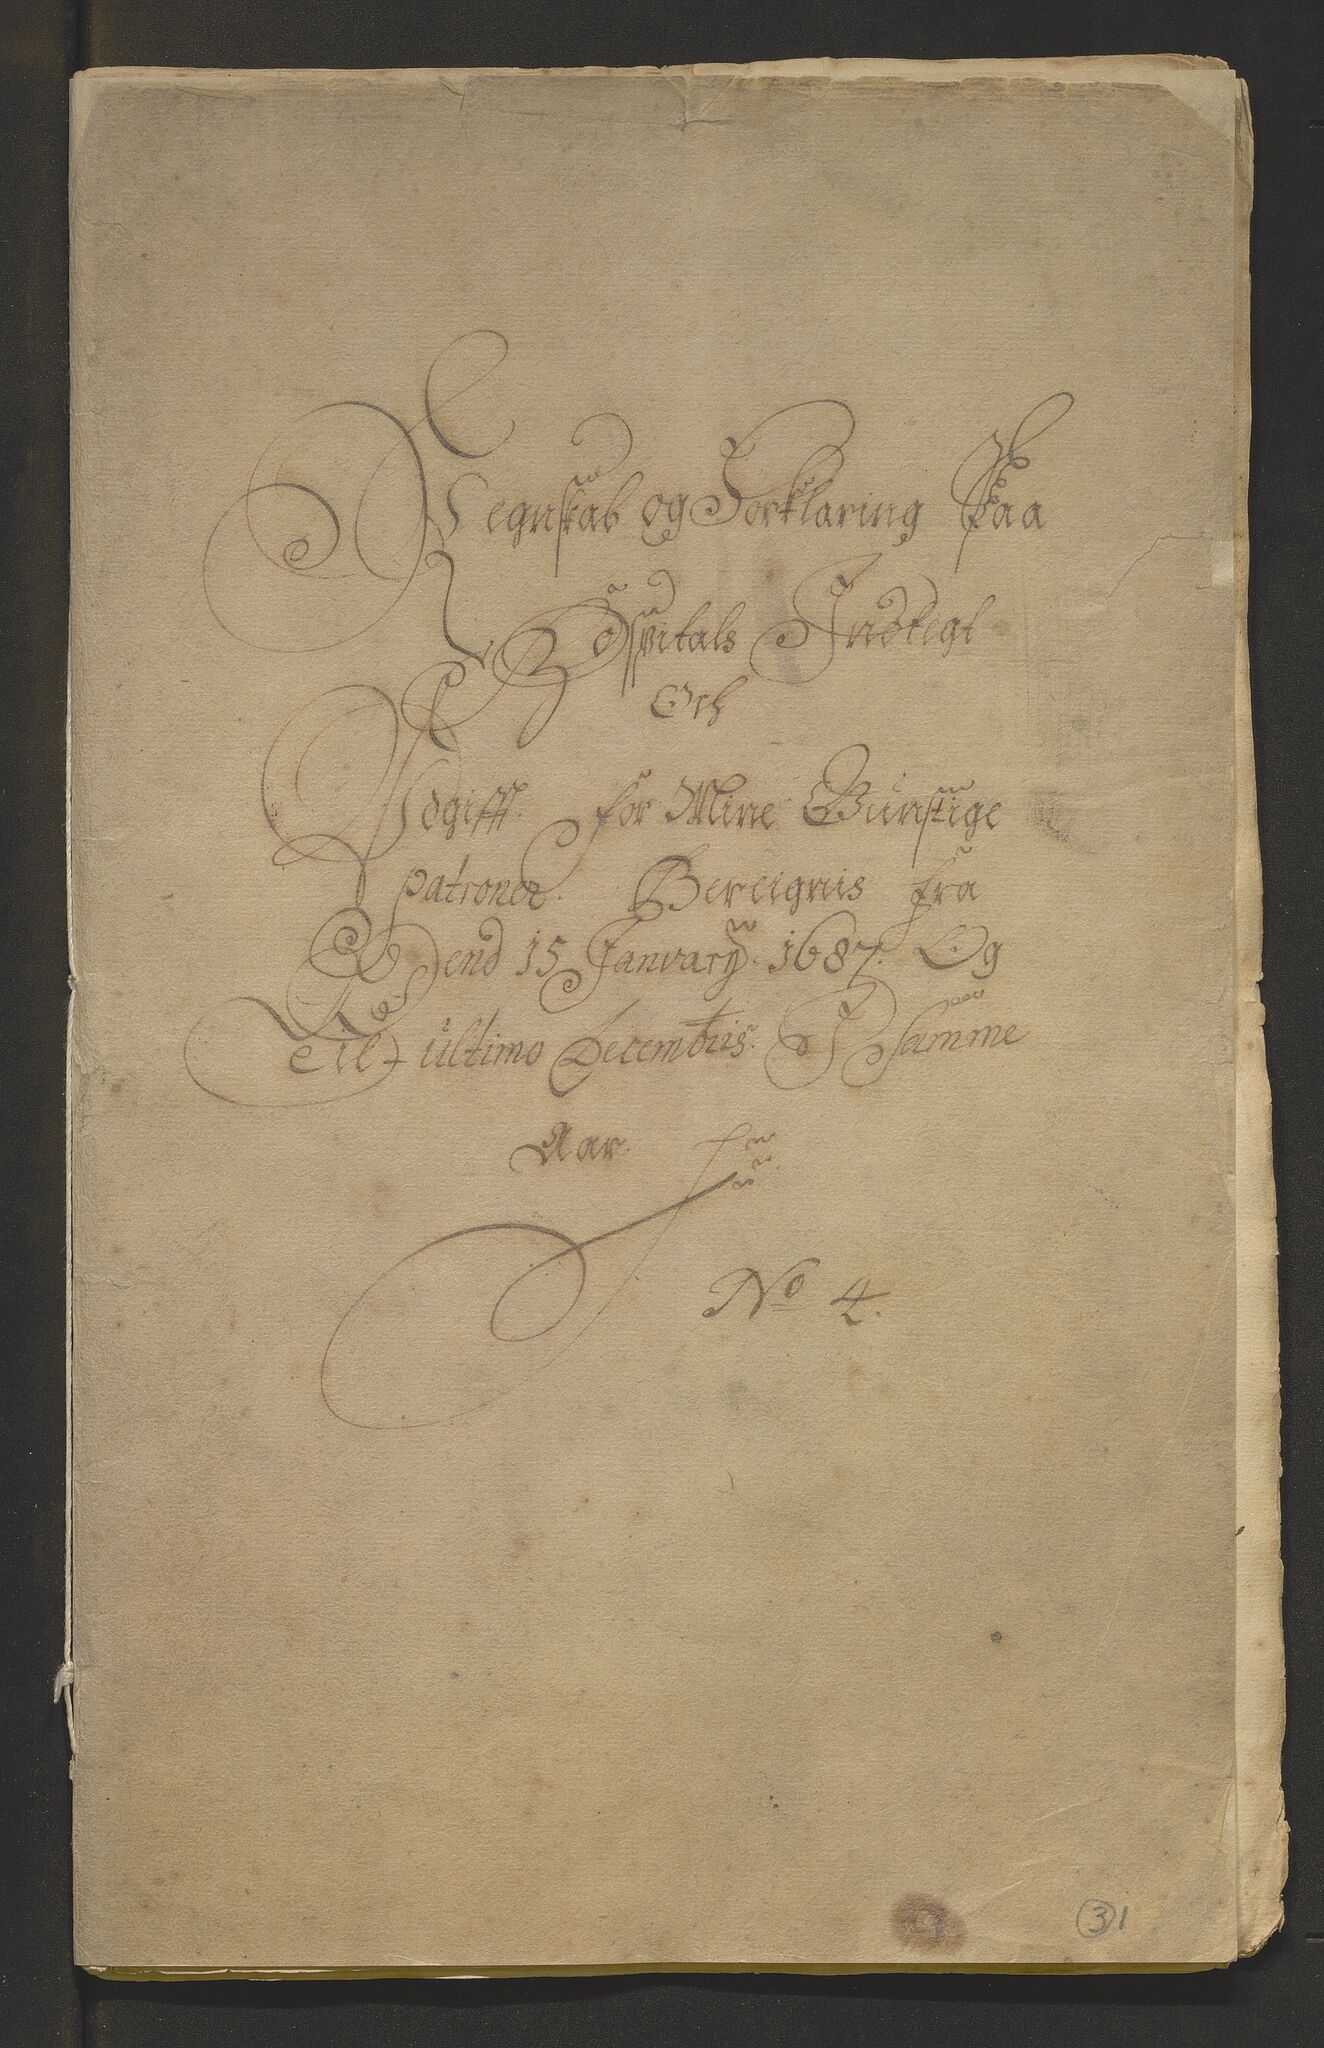 Regnskab og Forklaring Paa
Hospitals Indtegt
Och
Udgifft. for Mine Gunstige
patroner. Bereignis fra
Dend 15 January. 1687. Og
Til ultimo Decembris. I samme
Aar.
No 4.
3 1